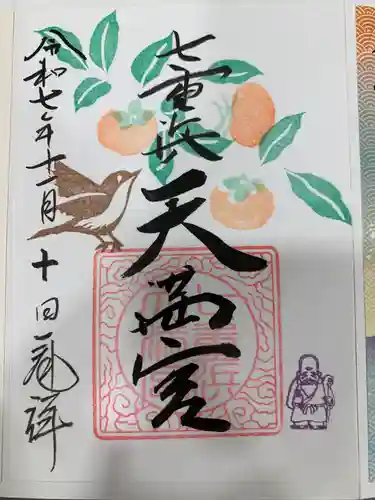 七重浜
天満宮
令和七年十一月十日 参拝